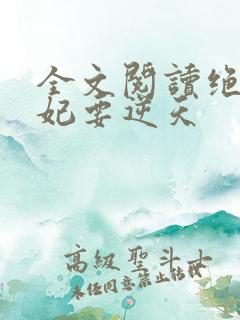 全文閱讀绝
妃要逆天
高級聖斗士
未任同意禁止转载